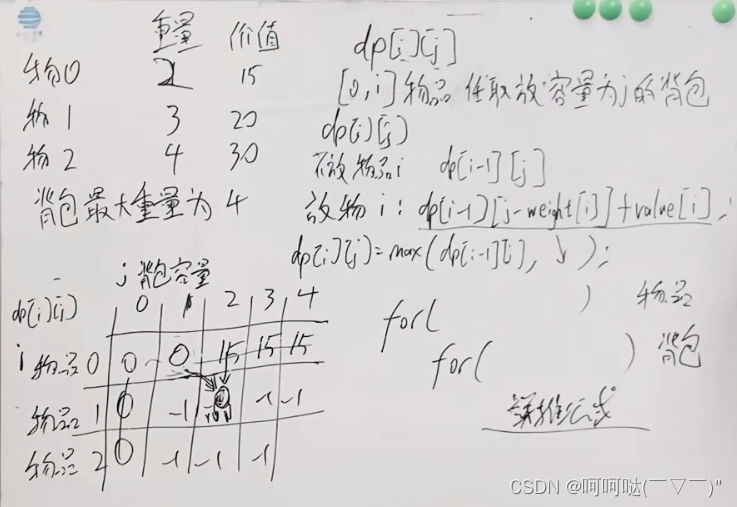 重量 价值
物0 2 15
物1 3 20
物2 4 30
背包最大重量为4
dp[i][j]
[0,i]物品 任取放容量为j的背包
dp[i][j]
不放物品i dp[i-1][j]
放物i: dp[i-1][j-weight[i]]+value[i];
dp[i][j]=max(dp[i-1][j], ↓ );
for( ) 物品
for( ) 背包
递推公式
j 背包容量
dp[i][j] 0 1 2 3 4
i 物品0 0 0 15 15 15
物品1 0 -1 -1 -1
物品2 0 -1 -1 -1
CSDN @呵呵哒(￣▽￣)"